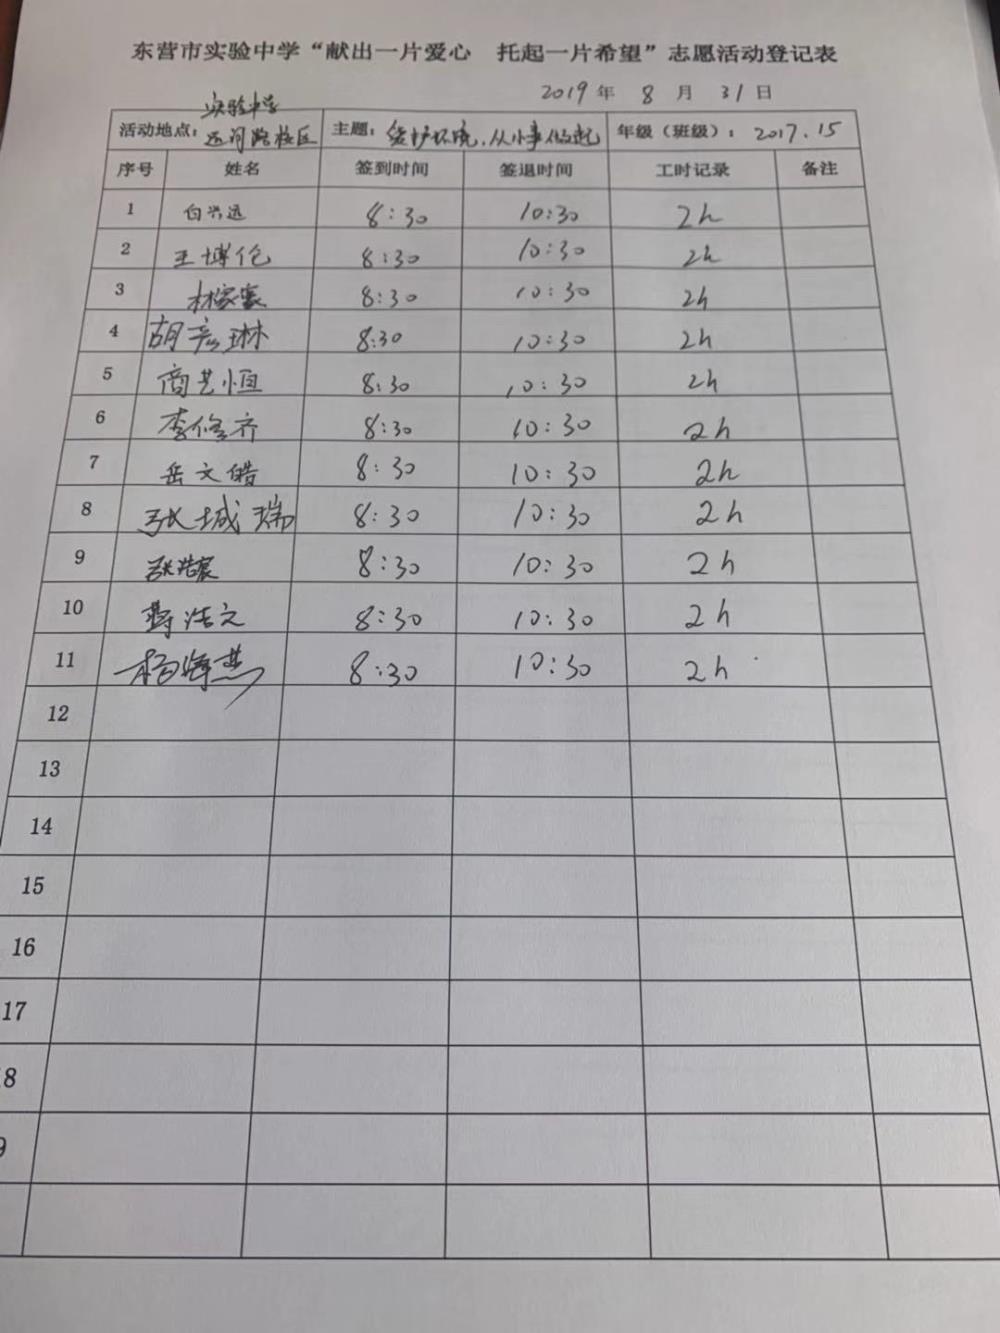 东营市实验中学“献出一片爱心 托起一片希望”志愿活动登记表
2019年 8月 31日
活动地点：实验中学运河路校区 主题：爱护环境，从小事做起 年级（班级）：2017.15
序号 姓名 签到时间 签退时间 工时记录 备注
1 白兴远 8:30 10:30 2h
2 王博伦 8:30 10:30 2h
3 林家豪 8:30 10:30 2h
4 胡彦琳 8:30 10:30 2h
5 商艺恒 8:30 10:30 2h
6 李修齐 8:30 10:30 2h
7 岳文皓 8:30 10:30 2h
8 张城瑞 8:30 10:30 2h
9 张浩宸 8:30 10:30 2h
10 蒋浩文 8:30 10:30 2h
11 杨海燕 8:30 10:30 2h
12
13
14
15
16
17
18
9